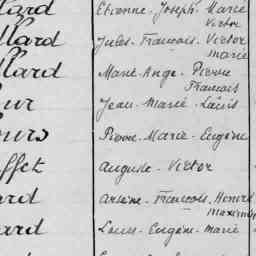 lard Etienne-Joseph-Marie
Victor
llard Jules-François-Victor
Marie
llard Marie Ange-Pierre
Francois
ur Jean-Marie-Louis
ours Pierre-Marie-Eugène
ffet Auguste-Victor
ard Arsène-François, Honoré
ard Louis-Eugène-Marie